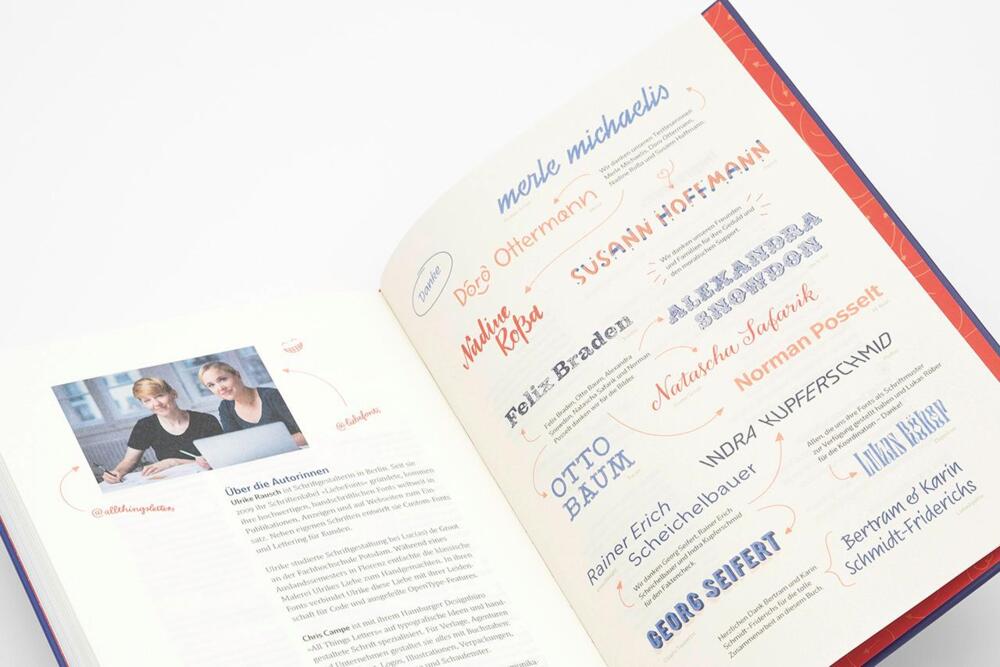 @allthingsletters
@liebefonts
Über die Autorinnen
Ulrike Rausch ist Schriftgestalterin in Berlin. Seit sie
2009 ihr Schriftenlabel »LiebeFonts« gründete, kommen
ihre hochwertigen, handschriftlichen Fonts weltweit in
Publikationen, Anzeigen und auf Webseiten zum Ein-
satz. Neben eigenen Schriften entwirft sie Custom-Fonts
und Lettering für Kunden.
Ulrike studierte Schriftgestaltung bei Luc(as) de Groot
an der Fachhochschule Potsdam. Während eines
Auslandssemesters in Florenz entfachte die klassische
Malerei Ulrikes Liebe zum Handgemachten. In ihren
Fonts verbindet Ulrike diese Liebe mit ihrer Leiden-
schaft für Code und ausgefeilte OpenType-Features.
Chris Campe ist mit ihrem Hamburger Designbüro
»All Things Letters« auf typografische Ideen und hand-
gestaltete Schrift spezialisiert. Für Verlage, Agenturen
und Unternehmen gestaltet sie alles mit Buchstaben:
Logos, Illustrationen, Verpackungen,
und Schaufenster.
Danke
merle michaelis
Wir danken unseren Testleserinnen
Merle Michaelis, Doro Ottermann,
Nadine Roßa und Susann Hoffmann.
Doro Ottermann
SUSANN HOFFMANN
Nadine
Roßa
Wir danken unseren Freunden
und Familien für ihre Geduld und
den moralischen Support.
ALEXANDRA
SNOWDON
Felix Braden
Felix Braden, Otto Baum, Alexandra
Snowdon, Natascha Safarik und Norman
Posselt danken wir für die Bilder.
Natascha Safarik
Norman Posselt
OTTO
BAUM
INDRA KUPFERSCHMID
Allen, die uns ihre Fonts als Schriftmuster
zur Verfügung gestellt haben und Lukan Rüber
für die Koordination – Danke!
Rainer Erich
Scheichelbauer
Wir danken Georg Seifert, Rainer Erich
Scheichelbauer und Indra Kupferschmid
für den Faktencheck.
GEORG SEIFERT
Bertram & Karin
Schmidt-Friderichs
Herzlichen Dank Bertram und Karin
Schmidt-Friderichs für die tolle
Zusammenarbeit an diesem Buch